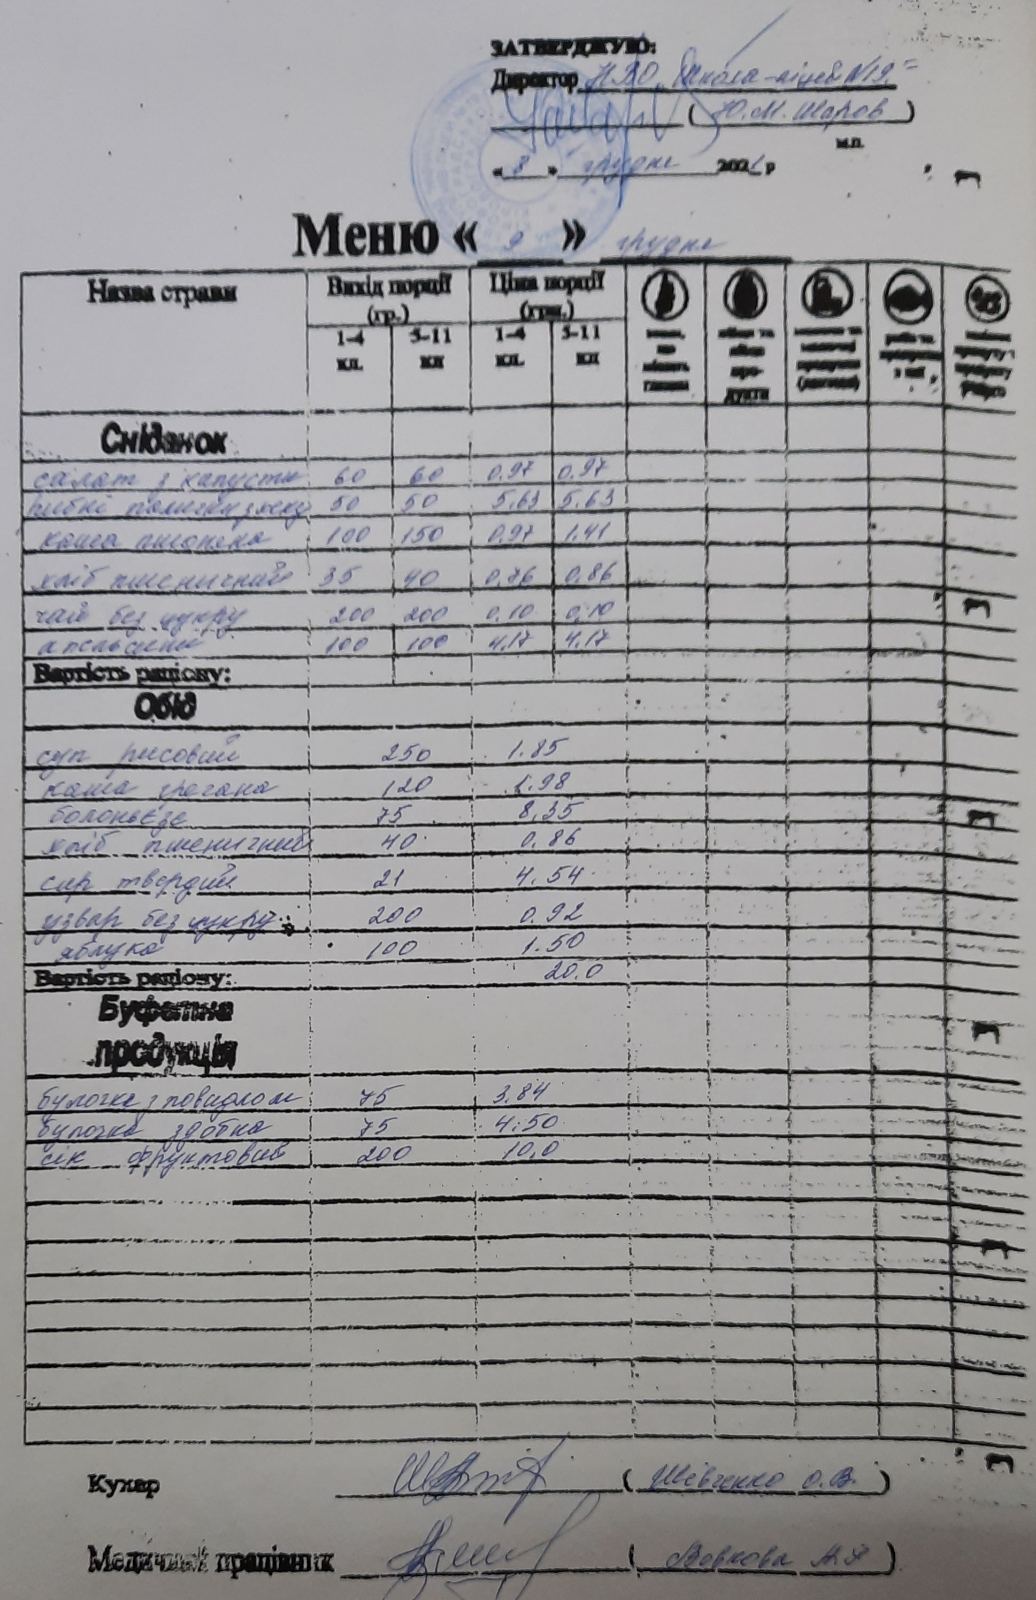 ЗАТВЕРДЖУЮ:
Директор НВО "Школа-ліцей №19"
( Ю.М. Шаров )
м.п.
« 8 » грудня 2021 р
Меню « 9 » грудня
Назва страви Вихід порції (гр.) Ціна порції (грн.)
1-4 кл. 5-11 кл 1-4 кл. 5-11 кл
Сніданок
салат з капусти 60 60 0,97 0,97
50 50 5.63 5.63
каша пшоняна 100 150 0,97 1.41
хліб пшеничний 35 40 0,86 0,86
чай без цукру 200 200 0,10 0,10
апельсини 100 100 4.17 4.17
Вартість раціону:
Обід
суп рисовий 250 1.85
каша гречана 120 1.98
болоньєзе 75 8,35
хліб пшеничний 40 0.86
сир твердий 21 4.54
узвар без цукру 200 0.92
яблука 100 1.50
Вартість раціону: 20.0
Буфетна
продукція
булочка з повидлом 75 3.84
булочка здобна 75 4.50
сік фруктовий 200 10,0
Кухар ( Шевченко О.В. )
Медичний працівник ( Вовкова )